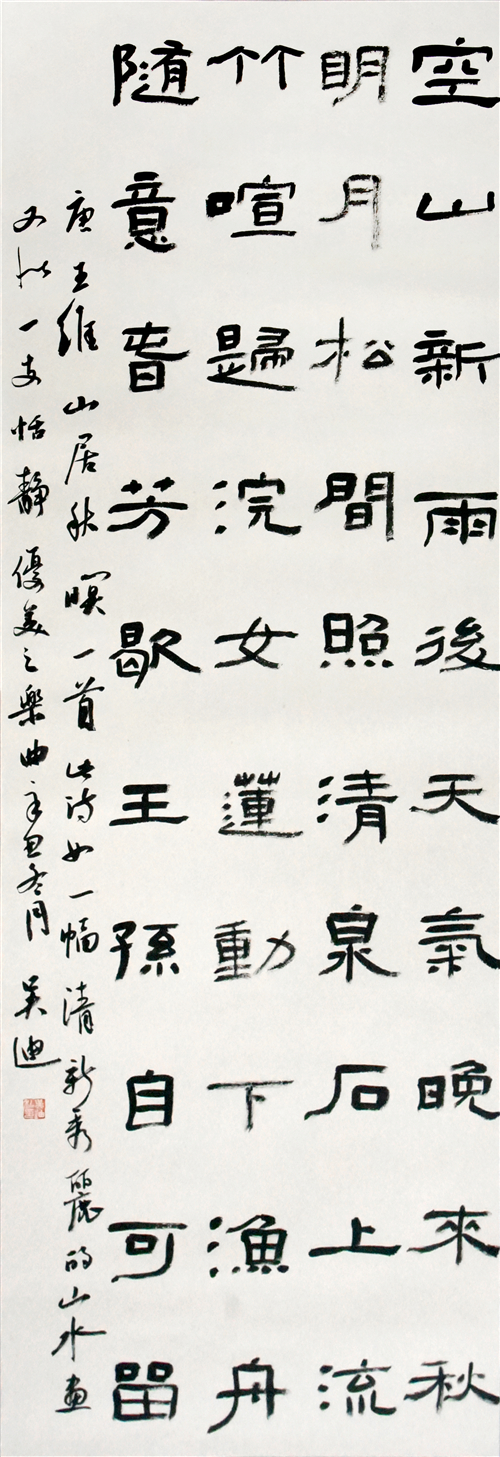 空山新雨後天氣晚來秋
明月松間照清泉石上流
竹喧歸浣女蓮動下漁舟
隨意春芳歇王孫自可留
唐王維山居秋暝一首此詩如一幅清新秀麗的山水畫
又似一支恬靜優美之樂曲辛丑冬月吴迪